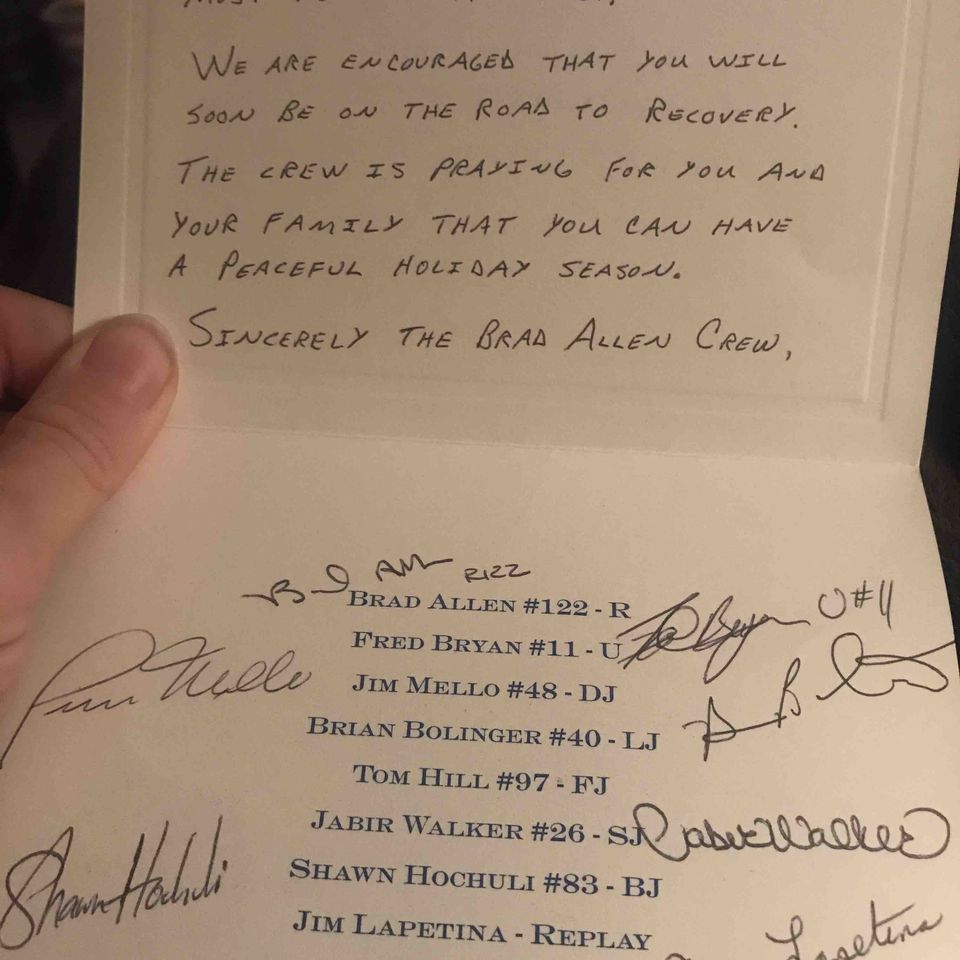 WE ARE ENCOURAGED THAT YOU WILL
SOON BE ON THE ROAD TO RECOVERY.
THE CREW IS PRAYING FOR YOU AND
YOUR FAMILY THAT YOU CAN HAVE
A PEACEFUL HOLIDAY SEASON.
SINCERELY THE BRAD ALLEN CREW,
R122
BRAD ALLEN #122 - R
U #11
FRED BRYAN #11 - U
Jim Mello
JIM MELLO #48 - DJ
BRIAN BOLINGER #40 - LJ
TOM HILL #97 - FJ
JABIR WALKER #26 - SJ
Jabir Walker
Shawn Hochuli
SHAWN HOCHULI #83 - BJ
JIM LAPETINA - REPLAY
Lapetina